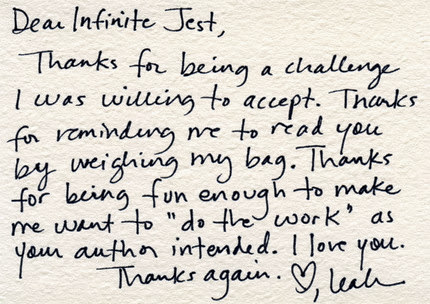 Dear Infinite Jest,
Thanks for being a challenge
I was willing to accept. Thanks
for reminding me to read you
by weighing my bag. Thanks
for being fun enough to make
me want to "do the work" as
your author intended. I love you.
Thanks again. ♡, Leah